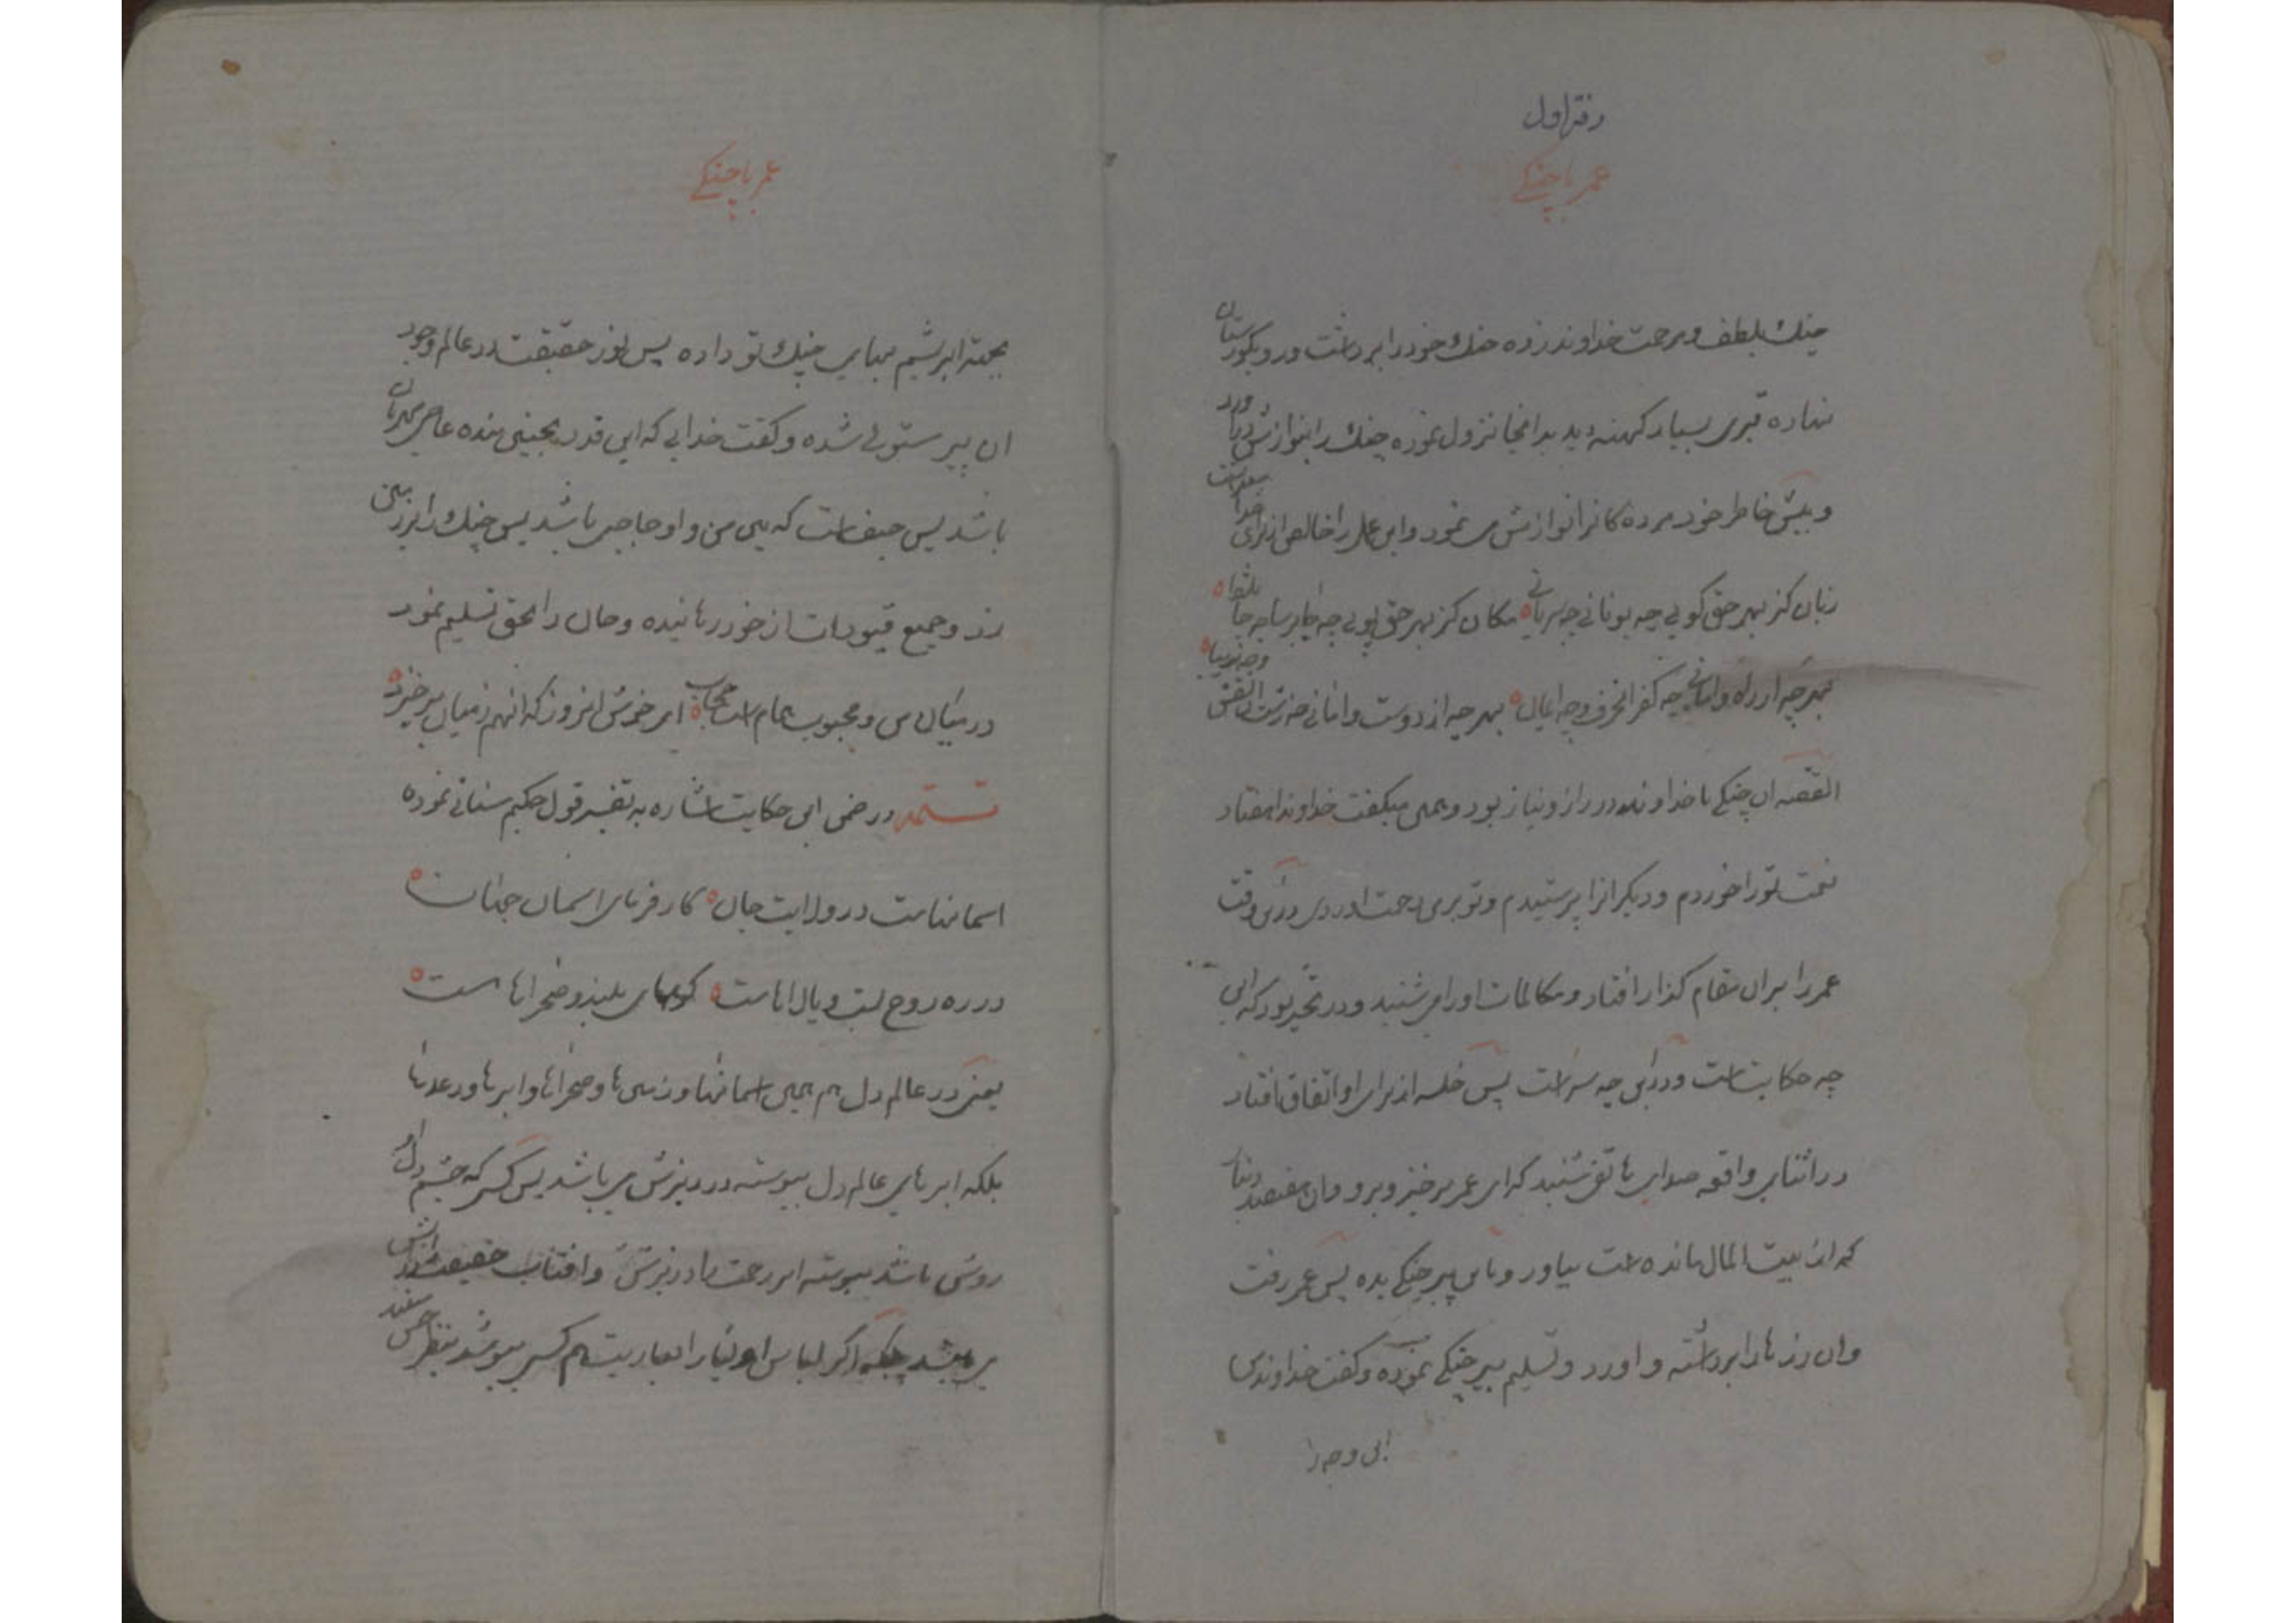 دفتر اول
عمر با چنگے
چنك بلطف ومرحمت خداوند زده چنك خود را برداشت ورو بگورستان
نهاده قبری بسیار کهنه دید بدانجا نزول نموده چنك را بنوازش در آورد
وبیش خاطر خود مرده کانرا نوازش می نمود واین عمل را خالص از برای خدا میدانست
زبان کز بهر حق گویی چه یونانی چه سریانی ه مکان کز بهر حق پویی چه جابلسا چه جابلقا ه
بهر چه از راه وامانی چه کفر انحرف وچه ایمان ه بهر چه از دوست وامانی چه زشت ان نقش وچه زیبا ه
القصه ان چنگے با خداوند در راز ونیاز بود وهمی میگفت خداوندا هفتاد
نعمت تو را خوردم ودیگرانرا پرستیدم وتو بری رحمت اوردی در این وقت
عمر را بران مقام گذار افتاد ومکالمات او را می شنید ودر تحیر بود که این
چه حکایت است ودر این چه سر است پس خلسه از برای او اتفاق افتاد
در اثنای واقعه صدای هاتفی شنید که ای عمر برخیز وبرو وان هفتصد دینار
که از بیت المال مانده است بیاور وباین پیر چنگے بده پس عمر رفت
وان زرها را برداشته واورد وتسلیم پیر چنگے نموده وگفت خداوند
این وجه را
عمر با چنگے
بجهته ابریشم بهای چنك تو داده پس نور حقیقت در عالم وجود
ان پیر مستولی شده وگفت خدایی که این قدر بچنین بنده عاصی مهربان
باشد پس حیف است که بین من و او حاجبی باشد پس چنك را بر زمین
زد وجمیع قیودات از خود رهانیده وجان را بحق تسلیم نمود
در میان من ومحبوب همام است حجاب ه ای خوش انروز که انهم ز میان برخیزد ه
تستمه در ضمن این حکایت اشاره به تفسیر قول حکیم سنائی نموده
اسمانهاست در ولایت جان ه کار فرمای اسمان جهان ه
در ره روح پست وبالاهاست ه کوههای بلند وصحراهاست ه
یعنی در عالم دل هم همین اسمانها وزمین ها وصحراها وابرها ورعدها
بلکه ابرهای عالم دل پیوسته در ریزش می باشد پس کسی که چشم دل او
روشن باشد پیوسته ابر رحمت را در ریزش وافتاب حقیقت را در تابش
می بیند چنانکه اگر لباس اولیا را بعاریت هم کسی بپوشد بنظرش